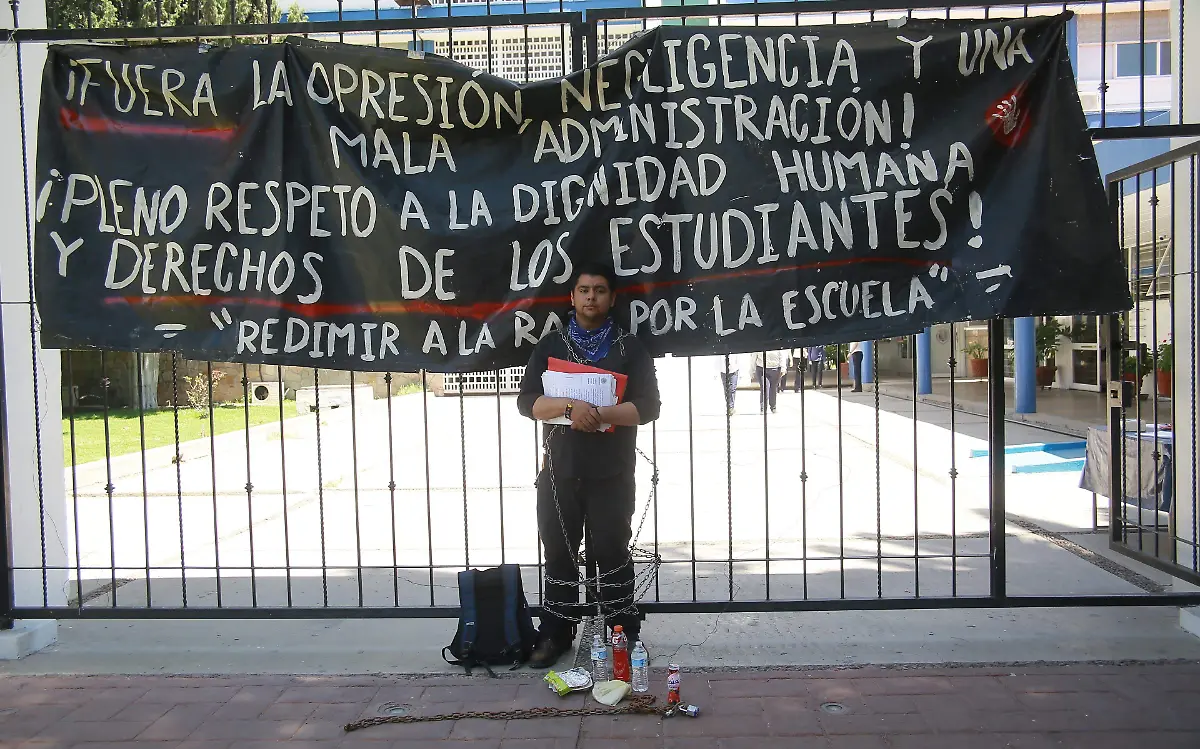 ¡FUERA LA OPRESIÓN, NEGLIGENCIA Y UNA
MALA ADMINISTRACIÓN!
¡PLENO RESPETO A LA DIGNIDAD HUMANA
Y DERECHOS DE LOS ESTUDIANTES!
- "REDIMIR A LA POR LA ESCUELA" -